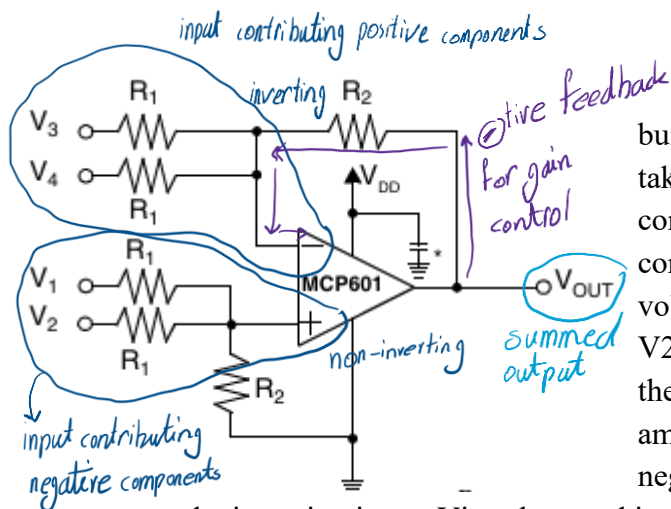 input contributing positive components
inverting
R1
R2
V3
V4
R1
VDD
*
⊖tive feedback
for gain
control
R1
V1
V2
R1
MCP601
−
+
VOUT
non-inverting
summed
output
R2
input contributing
negative components
bu
tak
con
con
vo
V2
the
am
neg